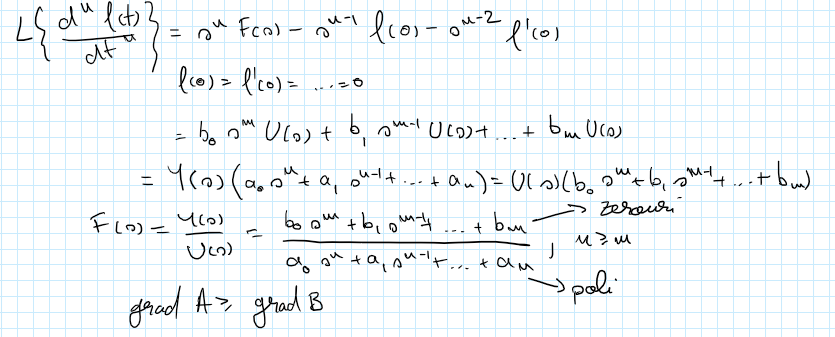 L{d^n f(t)/dt^n} = s^n F(s) - s^{n-1} f(0) - s^{n-2} f'(0)
f(0) = f'(0) = ... = 0
= b_0 s^m U(s) + b_1 s^{m-1} U(s) + ... + b_m U(s)
= Y(s)(a_0 s^n + a_1 s^{n-1} + ... + a_n) = U(s)(b_0 s^m + b_1 s^{m-1} + ... + b_m)
F(s) = Y(s)/U(s) = (b_0 s^m + b_1 s^{m-1} + ... + b_m)/(a_0 s^n + a_1 s^{n-1} + ... + a_n) ; n ≥ m
→ zerouri
→ poli
grad A ≥ grad B